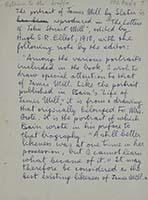 Reference to the [...]
The portrait of James Mill by Slater is
reproduced in "The Letters
of John Stuart Mill", edited by
Hugh S. R. Elliot, 1910, with the
following note by the editor:
"Among the various portraits
included in the book, I wish to
draw special attention to that
of James Mill. Like the portrait
published in Bain's life of
James Mill, it is from a drawing
that originally belonged to Mrs
Grote. It is the portrait of which
Bain wrote in his preface to
that biography: "A still better
likeness was at one time in her
possession, but I cannot learn
what became of it." It may
therefore be considered as the
best existing likeness of James Mill."